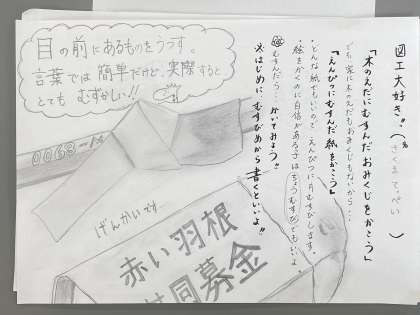 図工大好き!!
「木のえだにむすんだおみくじをかこう」
でも、家に木のえだもおみくじもないから・・・
「えんぴつにむすんだ紙をかこう」
・どんな紙でもいいので、えんぴつに片むすびします。
・絵をかくのに自信がある子はちょうむすびでもいいよ。
むすんだら・・・かいてみよう!!
※はじめに むすびめから書くといいよ!!
目の前にあるものをうつす。
言葉では簡単だけど、実際すると
とても むずかしい!!
0068-
げんかいです…
赤い羽根
共同募金